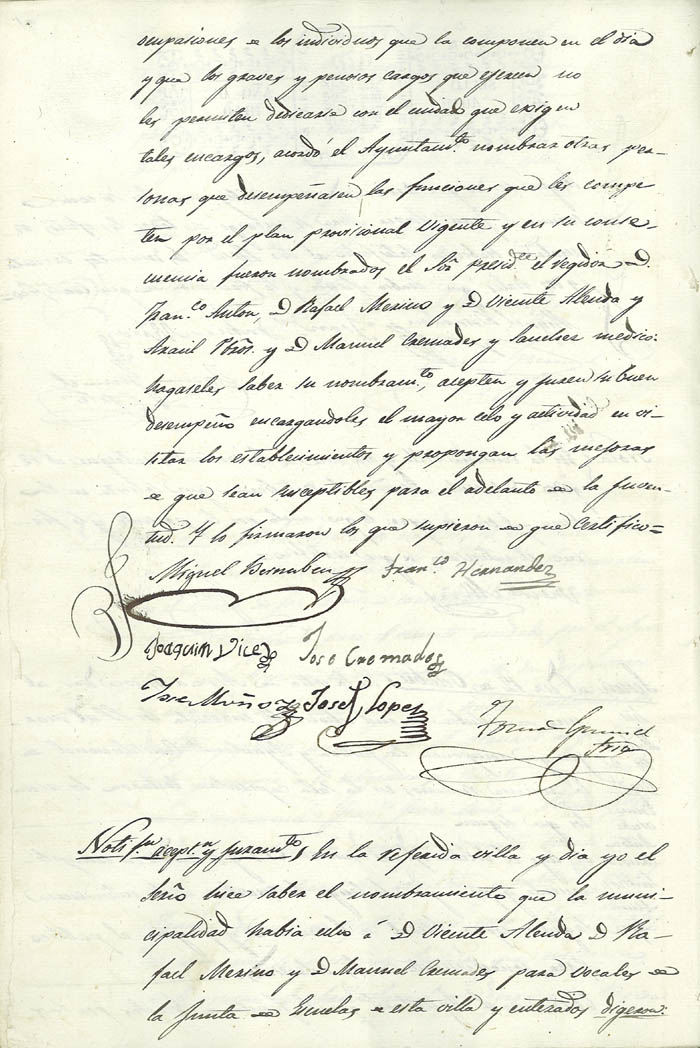 ocupasiones de los individuos que la componen en el dia
y que los graves y penosos cargos que ejercen no
les permiten dedicarse con el cuidado que exigen
tales encargos, acordó el Ayuntam.to nombrar otras per-
sonas que desempeñasen las funciones que les compe
ten por el plan provisional vigente y en su conse-
cuencia fueron nombrados el Sor presid.te el regidor D.
Fran.co Anton, D Rafael Merino y D Vicente Alenda y
y D Manuel Cremades y Sanchez medico:
hagaseles saber su nombram.to, acepten y juren su buen
desempeño encargandoles el mayor celo y actividad en vi-
sitar los establecimientos y propongan las mejoras
de que sean suceptibles para el adelanto de la juven-
tud. Y lo firmaron los que supieron de que Certifico=
Miguel Bernabeu Fran.co Hernandez
Joaquin Jose Cremades
Jose Muñoz Josef Lopez
En la referida villa y dia yo el
Srio hice saber el nombramiento que la muni-
cipalidad habia echo á D Vicente Alenda D Ra-
fael Merino y D Manuel Cremades para vocales de
la Junta de Escuelas de esta villa y enterados digeron: